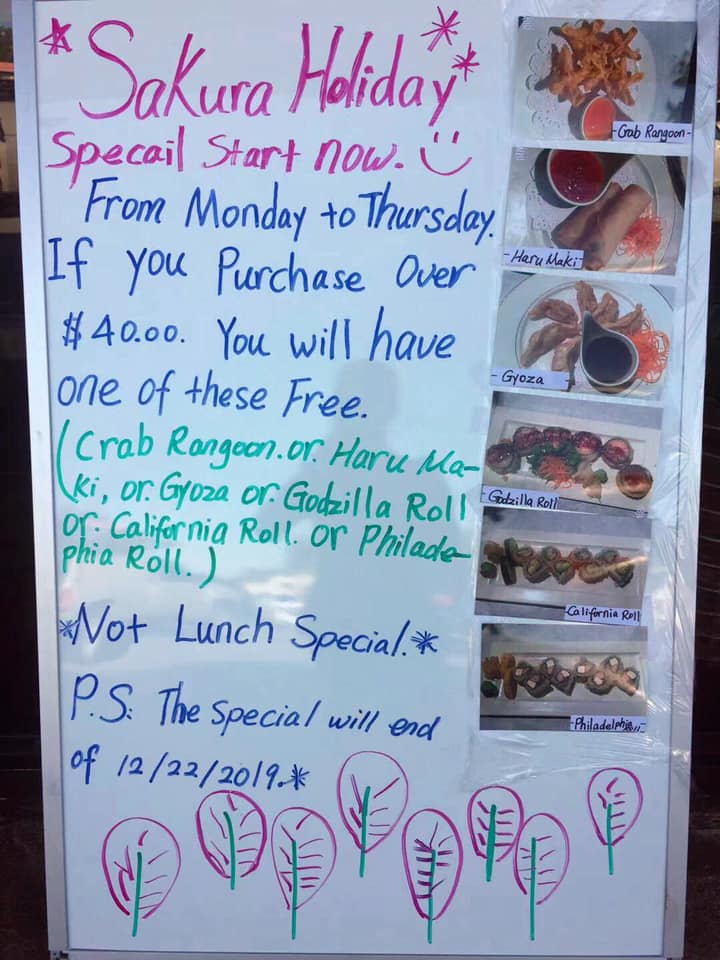 *Sakura Holiday**
Specail Start now.
From Monday to Thursday.
If you Purchase Over
$40.00. You will have
one of these Free.
(Crab Rangoon.or. Haru Ma-
ki, or. Gyoza or. Godzilla Roll
or. California Roll. or Philade-
phia Roll.)
*Not Lunch Special.*
P.S: The Special will end
of 12/22/2019.*
-Crab Rangoon-
-Haru Maki-
- Gyoza -
-Godzilla Roll
-California Roll
-Philadelphia Roll